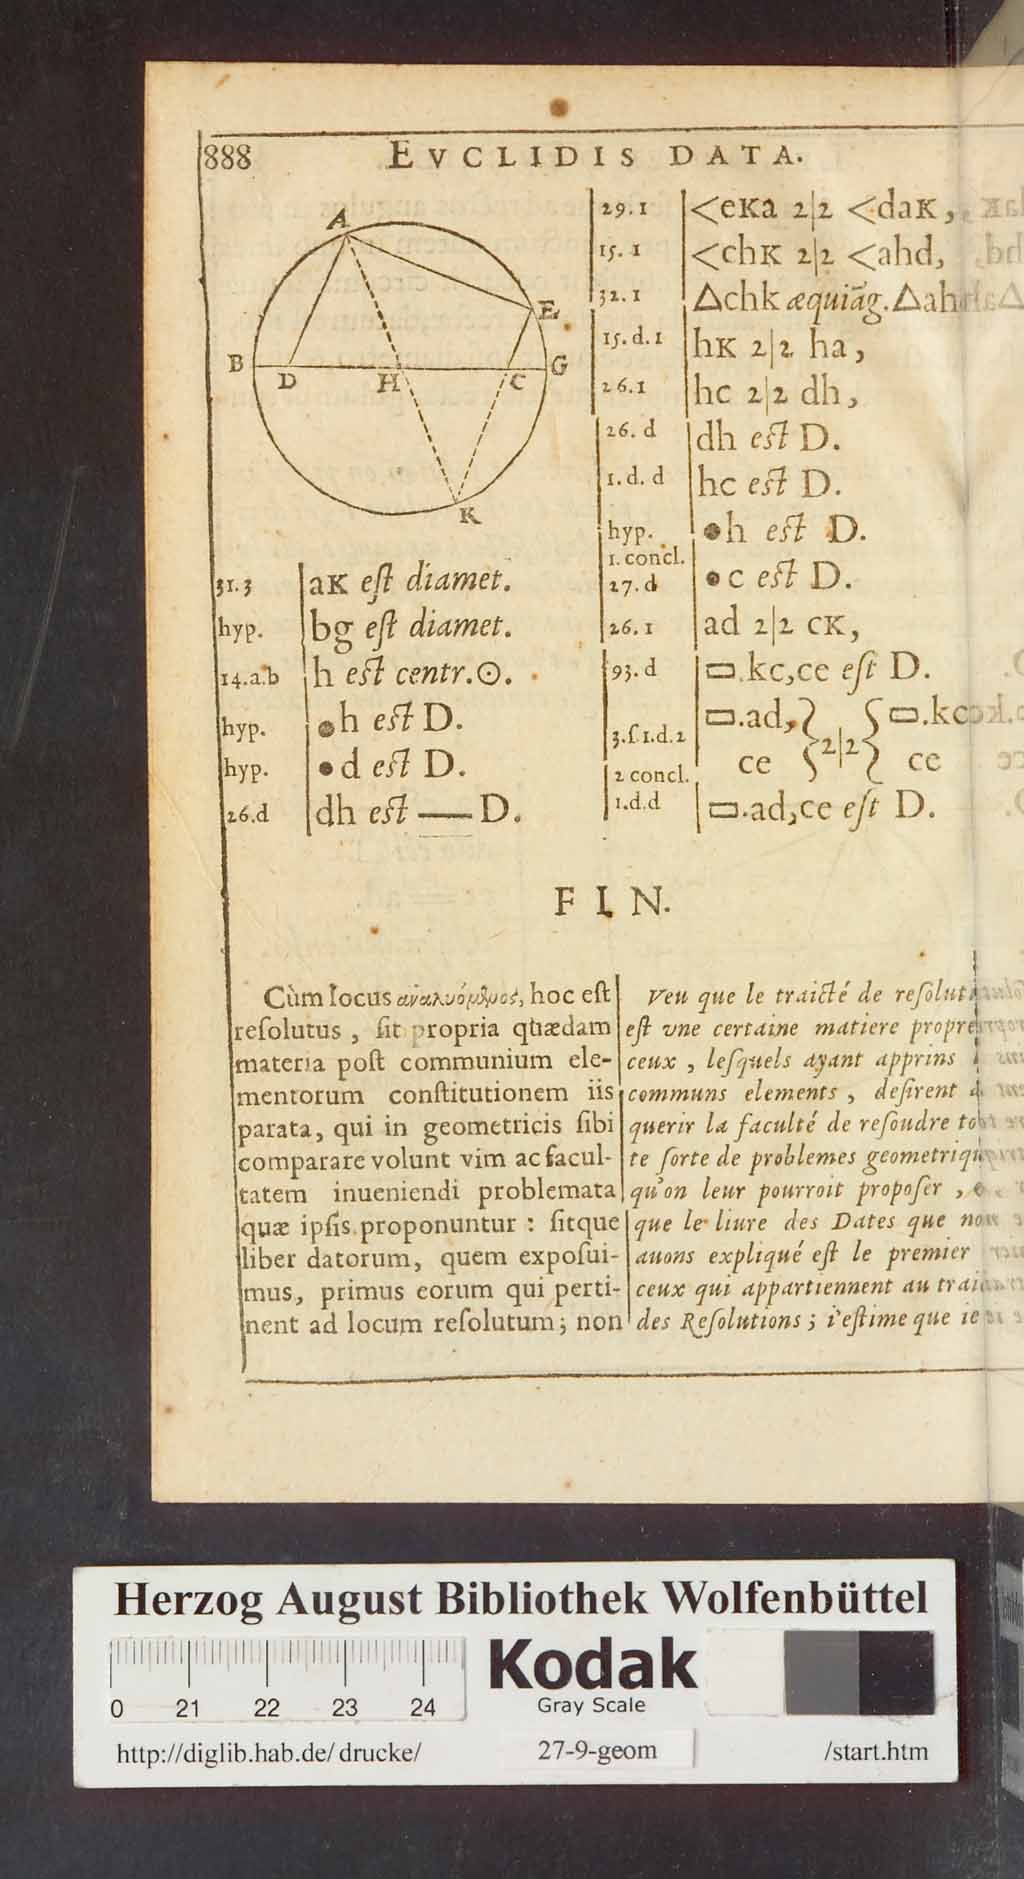 888 EVCLIDIS DATA.
A
E
B D H C G
K
31.3 aK eſt diamet.
hyp. bg eſt diamet.
14.a.b h eſt centr.⊙.
hyp. •h eſt D.
hyp. •d eſt D.
26.d dh eſt — D.
29.1 <eKa 2|2 <daK,
15.1 <chK 2|2 <ahd,
32.1 △chk æquiãg.△ah
15.d.1 hK 2|2 ha,
26.1 hc 2|2 dh,
26.d dh eſt D.
1.d.d hc eſt D.
hyp. •h eſt D.
1.concl.
27.d •c eſt D.
26.1 ad 2|2 cK,
93.d ▭.kc,ce eſt D.
3.ſ.1.d.2 ▭.ad, ce } 2|2 { ▭.kc ce
2 concl.
1.d.d ▭.ad,ce eſt D.
FIN.
Cùm locus ἀναλυόμενος, hoc eſt
reſolutus, ſit propria quædam
materia poſt communium ele-
mentorum conſtitutionem iis
parata, qui in geometricis ſibi
comparare volunt vim ac facul-
tatem inueniendi problemata
quæ ipſis proponuntur : ſitque
liber datorum, quem expoſui-
mus, primus eorum qui perti-
nent ad locum reſolutum; non
Veu que le traicté de reſolut
eſt vne certaine matiere propre
ceux, leſquels ayant apprins
communs elements, deſirent
querir la faculté de reſoudre to
te ſorte de problemes geometriq
qu'on leur pourroit propoſer,
que le liure des Dates que nou
auons expliqué eſt le premier
ceux qui appartiennent au trai
des Reſolutions; i'eſtime que ie
Herzog August Bibliothek Wolfenbüttel
0 21 22 23 24
Kodak
Gray Scale
http://diglib.hab.de/drucke/ 27-9-geom /start.htm